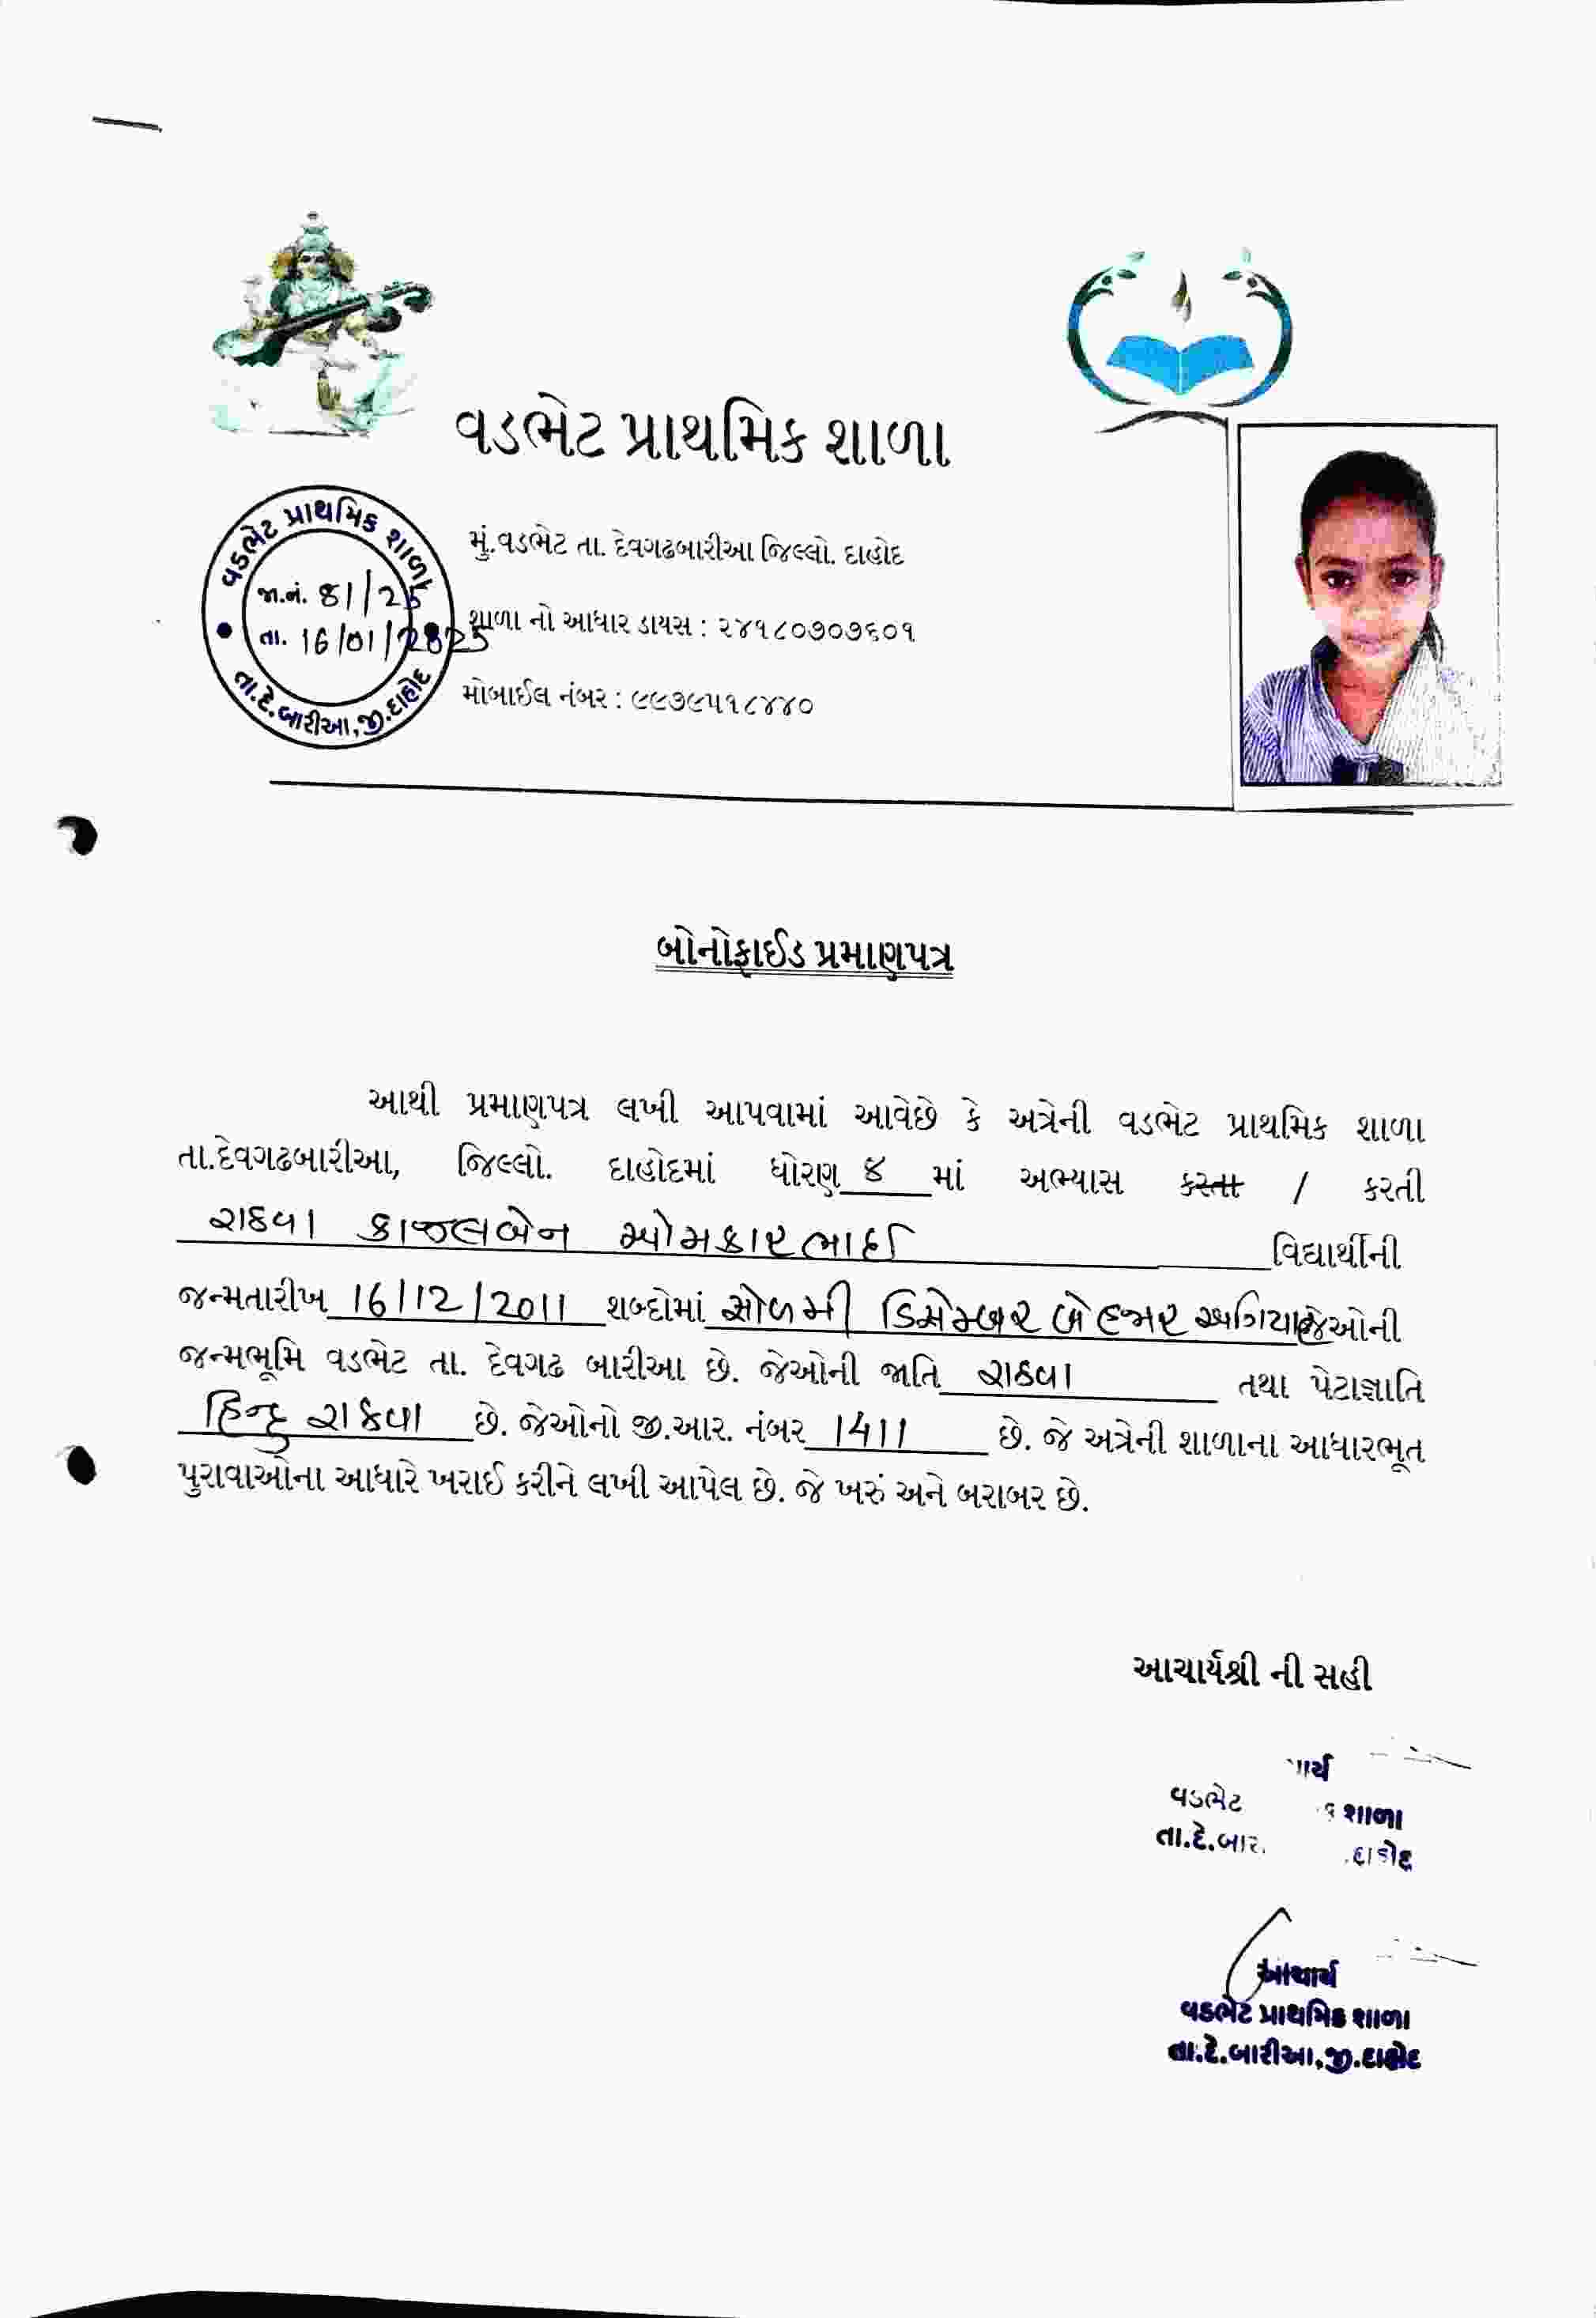 વડભેટ પ્રાથમિક શાળા
વડભેટ પ્રાથમિક શાળા
જા.નં. 81/25
તા. 16/01/2025
તા.દે.બારીઆ,જી.દાહોદ
મું.વડભેટ તા. દેવગઢબારીઆ જિલ્લો. દાહોદ
શાળા નો આધાર ડાયસ : ૨૪૧૮૦૭૦૭૬૦૧
મોબાઈલ નંબર : ૯૯૭૯૫૧૮૪૪૦
બોનોફાઈડ પ્રમાણપત્ર
આથી પ્રમાણપત્ર લખી આપવામાં આવેછે કે અત્રેની વડભેટ પ્રાથમિક શાળા
તા.દેવગઢબારીઆ, જિલ્લો. દાહોદમાં ધોરણ ૪ માં અભ્યાસ કરતા / કરતી
રાઠવા કાજલબેન ઓમકારભાઈ વિદ્યાર્થીની
જન્મતારીખ 16/12/2011 શબ્દોમાં સોળમી ડિસેમ્બર બેહજાર અગિયાર જેઓની
જન્મભૂમિ વડભેટ તા. દેવગઢ બારીઆ છે. જેઓની જાતિ રાઠવા તથા પેટાજ્ઞાતિ
હિન્દુ રાઠવા છે. જેઓનો જી.આર. નંબર 1411 છે. જે અત્રેની શાળાના આધારભૂત
પુરાવાઓના આધારે ખરાઈ કરીને લખી આપેલ છે. જે ખરું અને બરાબર છે.
આચાર્યશ્રી ની સહી
વડભેટ શાળા
તા.દે.બાર. દાહોદ
આચાર્ય
વડભેટ પ્રાથમિક શાળા
તા.દે.બારીઆ,જી.દાહોદ